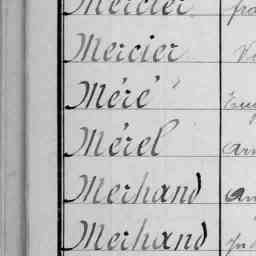 Mercier
Mercier
Méré
Mérel
Merhand
Merhand